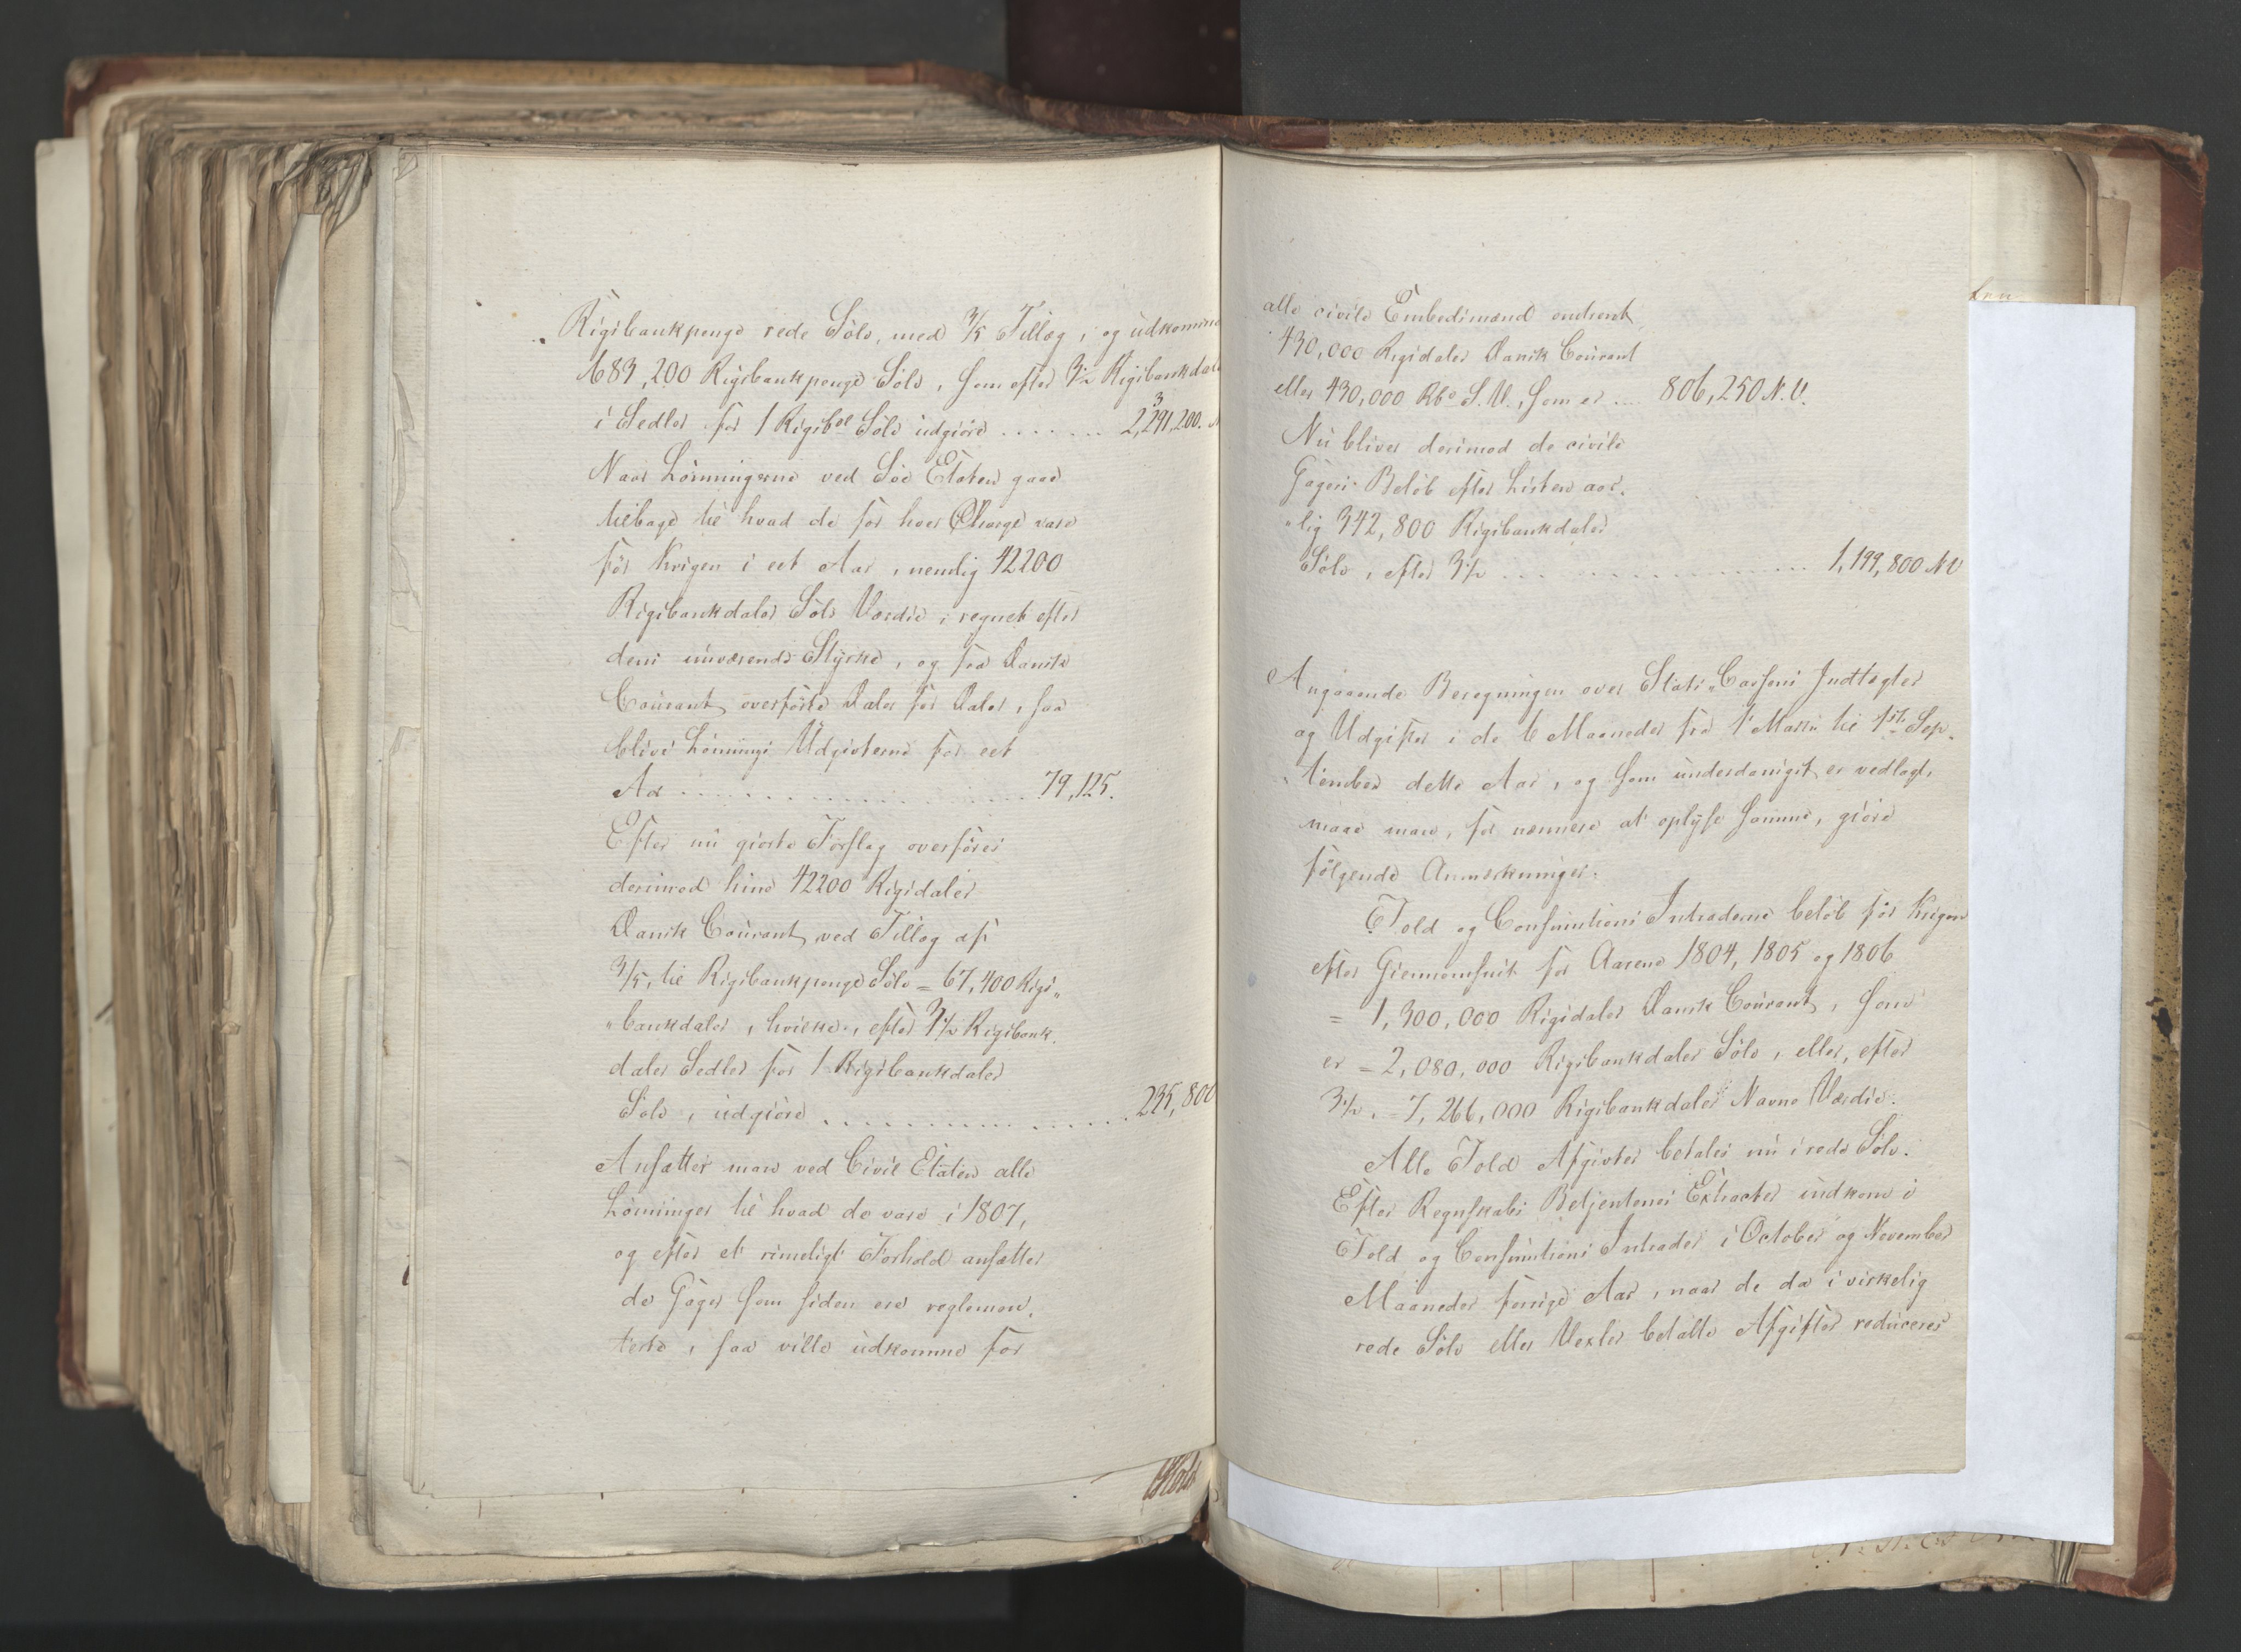 Rigsbankpenge rede Sølv, med 3/5 Tillæg, og udkomme
683,200 Rigsbankpenge Sølv, som efter 3½ Rigsbankdaler
i Sedler for 1 Rigsbdl Sølv udgiøre ....... 2,391,200. N
Naar Lønningerne ved Søe Etaten gaae
tilbage til hvad de for hver Charge vare
før Krigen i eet Aar, nemlig 42200
Rigsbankdaler Sølv Værdie, regnet efter
dens nuværende Styrke, og fra Dansk
Courant overførte Daler for Daler, saa
blive Lønnings Udgivterne for eet
Aar ................ 79,125.
Efter nu giorte Forslag overføres
derimod hine 42200 Rigsdaler
Dansk Courant, ved Tillæg af
3/5, til Rigsbankpenge Sølv = 67,400 Rigs„
„bankdaler, hvilke, efter 3½ Rigsbank„
daler Sedler for 1 Rigsbankdaler
Sølv, udgiøre ................ 235,800
Ansætter man ved Civil Etaten alle
Lønninger til hvad de vare i 1807,
og efter et rimeligt Forhold ansætter
de Gager som siden ere reglemen„
terte, saa ville udkomme for
alle civile Embedsmænd omtrent
430,000 Rigsdaler Dansk Courant
eller 430,000 Rbd S. V., som er .... 806,250 N. V.
Nu bliver derimod de civile
Gagers Beløb efter Listen aar„
„lig 342,800 Rigsbankdaler
Sølv, efter 3½ ................ 1,199,800 N V
Angaaende Beregningen over Stats„Cassens Indtægter
og Udgifter i de 6 Maaneder fra 1 Marts til 1ste Sep„
„tember dette Aar, og som underdanigst er vedlagt,
maae man, for nærmere at oplyse samme, giøre
følgende Anmærkninger.
Told og Consumtions Intraderne beløb før Krigen
efter Giennemsnit for Aarene 1804, 1805 og 1806
= 1,300,000 Rigsdaler Dansk Courant, som
er = 2,080,000 Rigsbankdaler Sølv, eller, efter
3½, = 7,266,000 Rigsbankdaler Navne Værdie.
Alle Told Afgivter betales nu i rede Sølv.
Efter Regnskabs Betjentenes Extracter indkom i
Told og Consumtions Intrader i October og November
Maaneder forrige Aar, naar de da i virkelig
rede Sølv eller Vexler betalte Afgifter reduceres